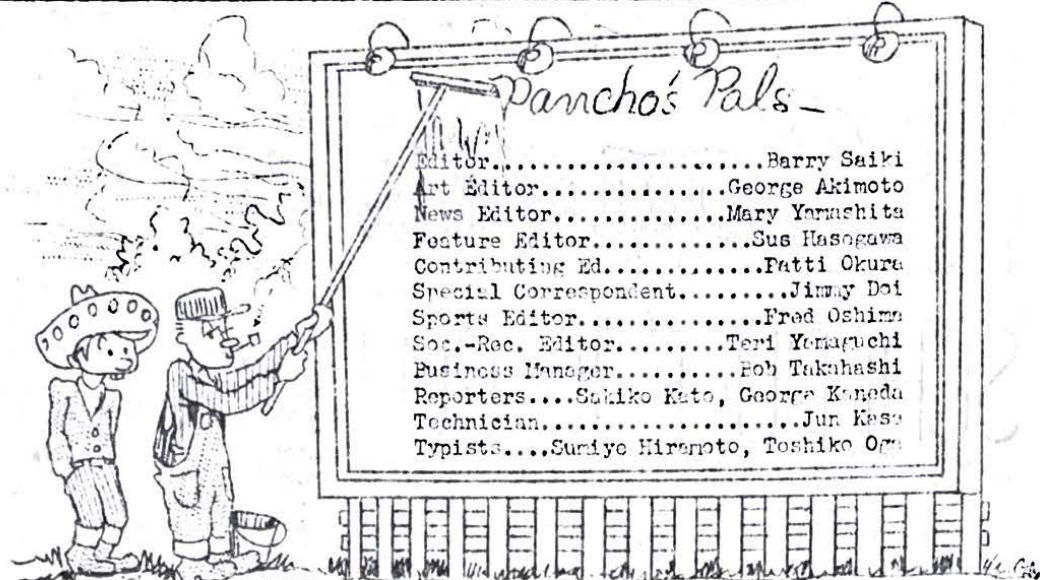 Pancho's Pals—
Editor.......................Barry Saiki
Art Editor................George Akimoto
News Editor..............Mary Yamashita
Feature Editor............Sus Hasegawa
Contributing Ed.............Patti Okura
Special Correspondent.........Jimmy Doi
Sports Editor...............Fred Oshima
Soc.-Rec. Editor.........Teri Yamaguchi
Business Manager..........Bob Takahashi
Reporters....Sakiko Kato, George Kaneda
Technician.....................Jun Kasa
Typists....Sumiye Hiramoto, Toshiko Oga